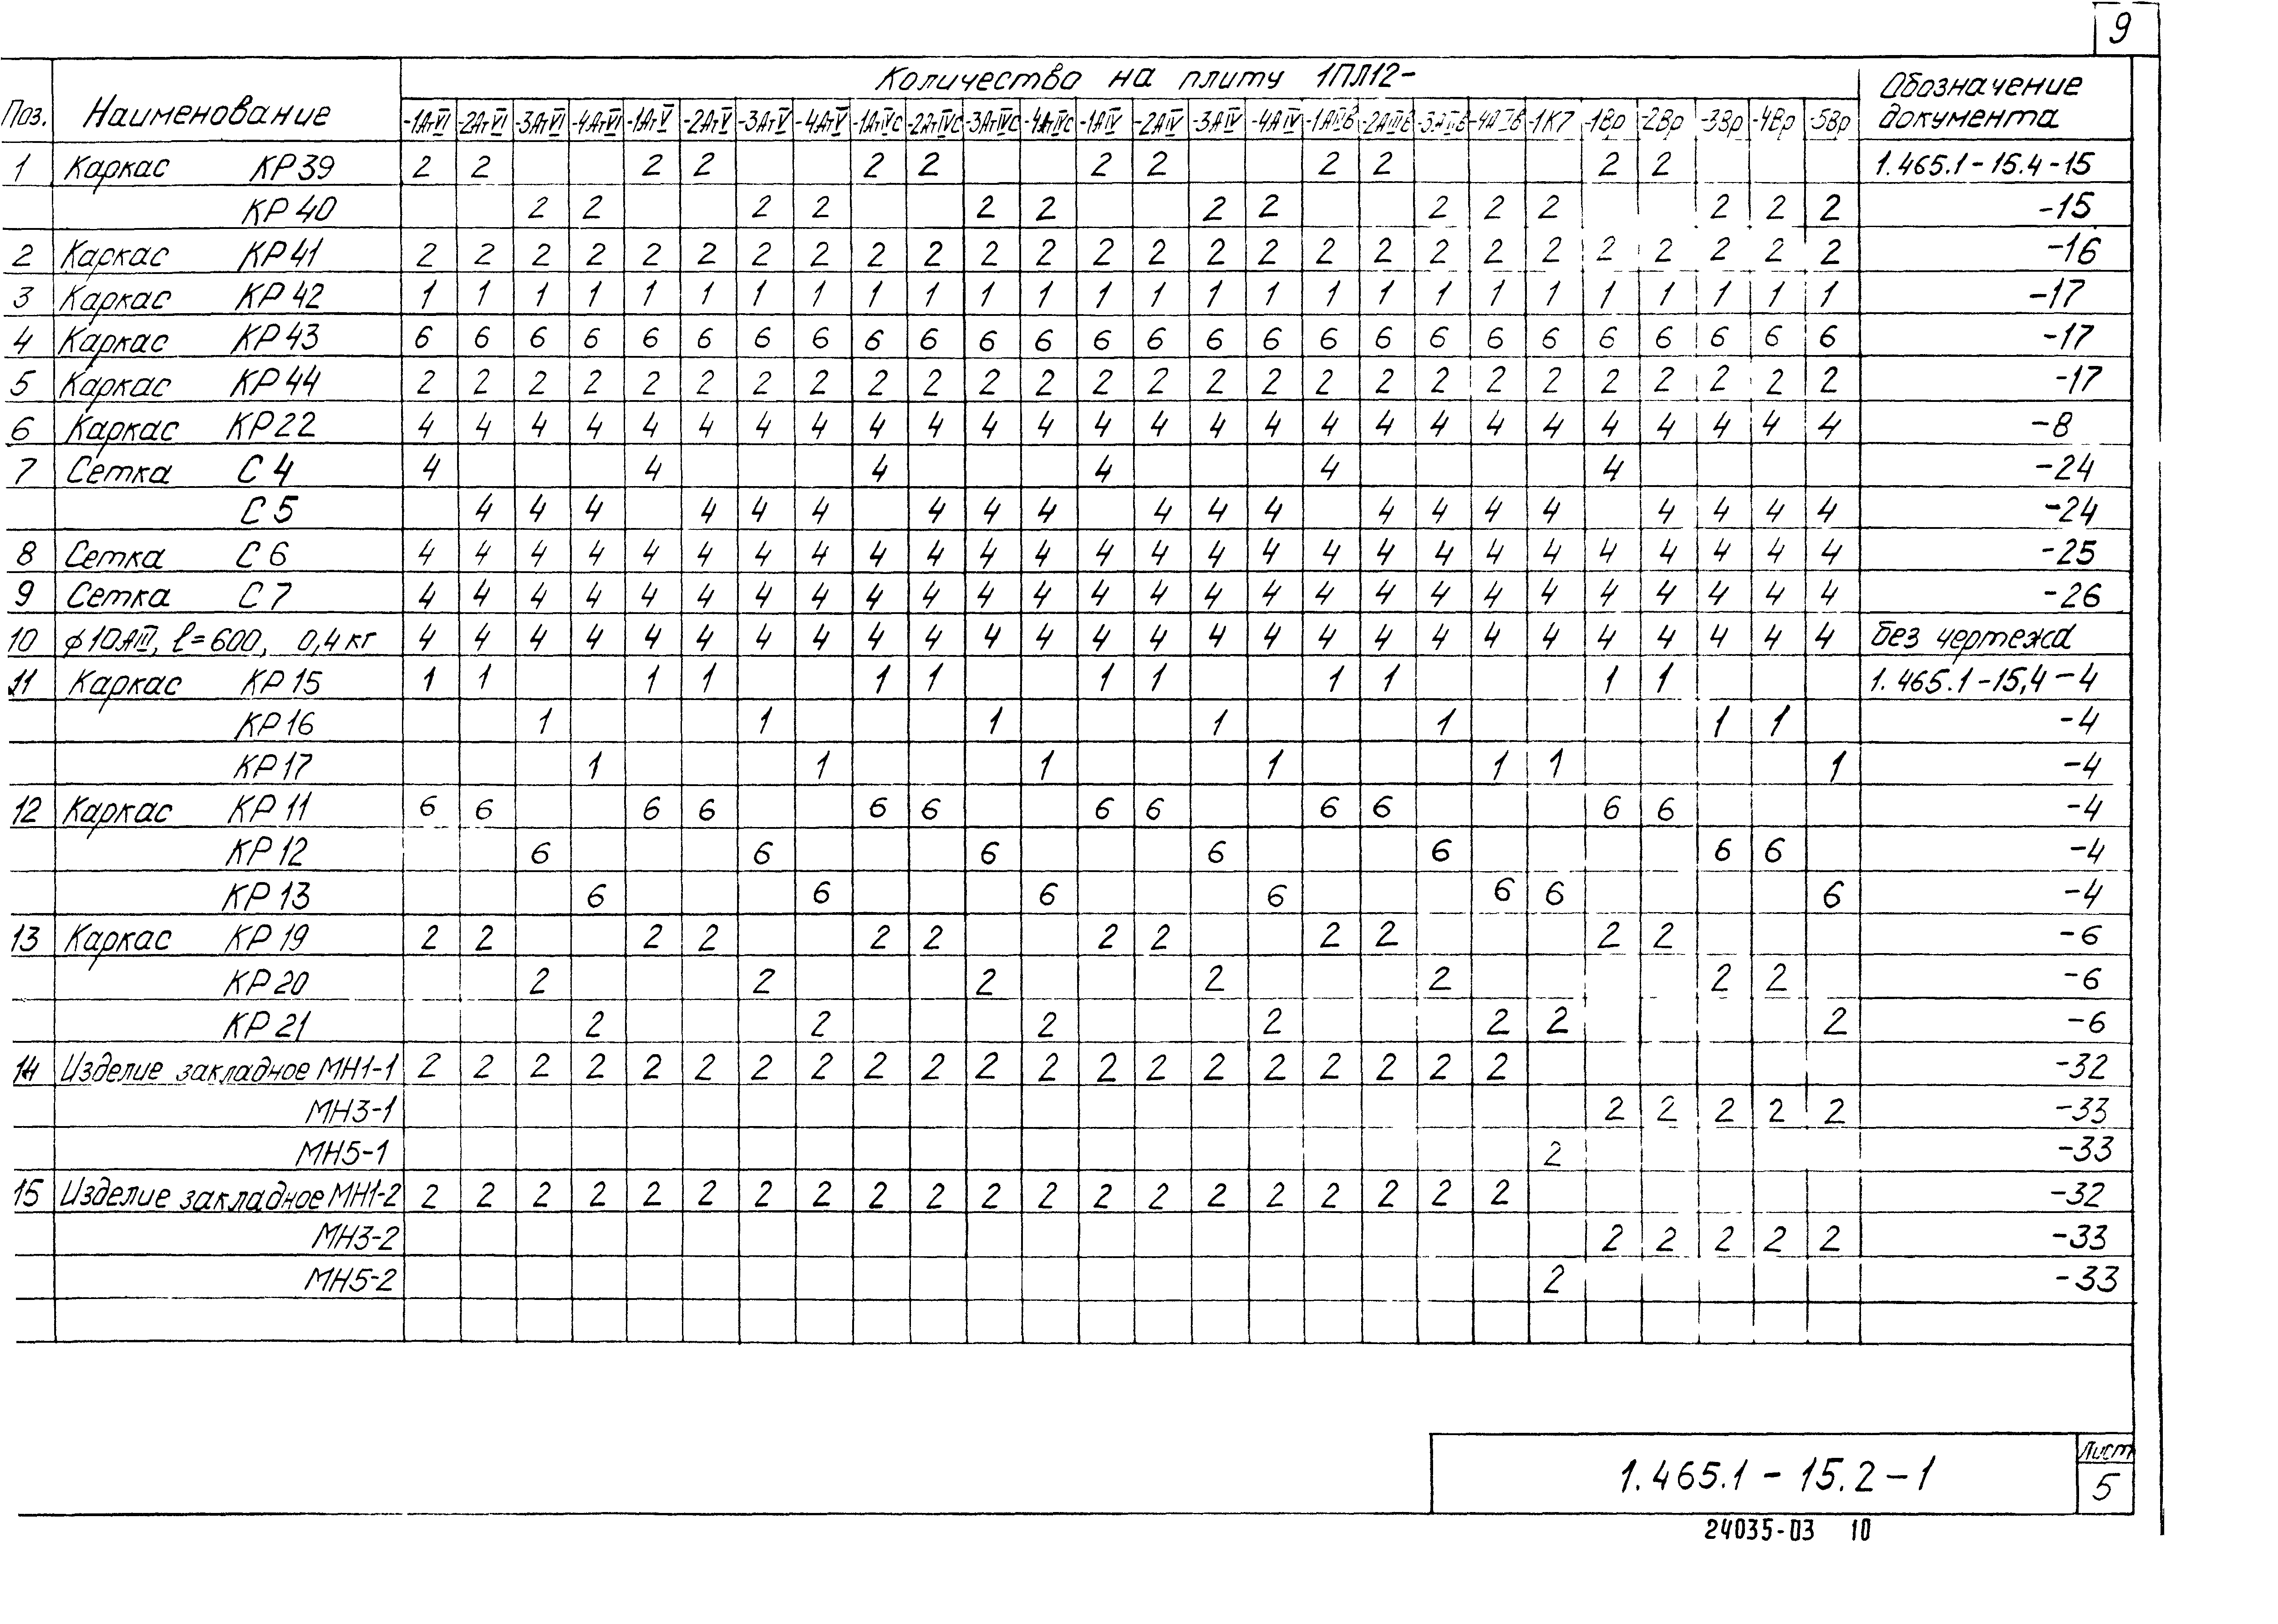 9
Количество на плиту 1ПЛ12-
Поз. Наименование -1АтVI -2АтVI -3АтVI -4АтVI -1АтV -2АтV -3АтV -4АтV -1АтIVС -2АтIVС -3АтIVС -4АтIVС -1АIV -2АIV -3АIV -4АIV -1АIIIв -2АIIIв -3АIIIв -4АIIIв -1К7 -1Вр -2Вр -3Вр -4Вр -5Вр Обозначение документа
1 Каркас КР39 2 2 2 2 2 2 2 2 2 2 2 2 1.465.1-15.4-15
КР40 2 2 2 2 2 2 2 2 2 2 2 2 2 2 -15
2 Каркас КР41 2 2 2 2 2 2 2 2 2 2 2 2 2 2 2 2 2 2 2 2 2 2 2 2 2 2 -16
3 Каркас КР42 1 1 1 1 1 1 1 1 1 1 1 1 1 1 1 1 1 1 1 1 1 1 1 1 1 1 -17
4 Каркас КР43 6 6 6 6 6 6 6 6 6 6 6 6 6 6 6 6 6 6 6 6 6 6 6 6 6 6 -17
5 Каркас КР44 2 2 2 2 2 2 2 2 2 2 2 2 2 2 2 2 2 2 2 2 2 2 2 2 2 2 -17
6 Каркас КР22 4 4 4 4 4 4 4 4 4 4 4 4 4 4 4 4 4 4 4 4 4 4 4 4 4 4 -8
7 Сетка С4 4 4 4 4 4 4 -24
С5 4 4 4 4 4 4 4 4 4 4 4 4 4 4 4 4 4 4 4 4 -24
8 Сетка С6 4 4 4 4 4 4 4 4 4 4 4 4 4 4 4 4 4 4 4 4 4 4 4 4 4 4 -25
9 Сетка С7 4 4 4 4 4 4 4 4 4 4 4 4 4 4 4 4 4 4 4 4 4 4 4 4 4 4 -26
10 ϕ10АIII, ℓ=600, 0,4кг 4 4 4 4 4 4 4 4 4 4 4 4 4 4 4 4 4 4 4 4 4 4 4 4 4 4 без чертежа
11 Каркас КР15 1 1 1 1 1 1 1 1 1 1 1 1 1.465.1-15,4-4
КР16 1 1 1 1 1 1 1 -4
КР17 1 1 1 1 1 1 1 -4
12 Каркас КР11 6 6 6 6 6 6 6 6 6 6 6 6 -4
КР12 6 6 6 6 6 6 6 -4
КР13 6 6 6 6 6 6 6 -4
13 Каркас КР19 2 2 2 2 2 2 2 2 2 2 2 2 -6
КР20 2 2 2 2 2 2 2 -6
КР21 2 2 2 2 2 2 2 -6
14 Изделие закладное МН1-1 2 2 2 2 2 2 2 2 2 2 2 2 2 2 2 2 2 2 2 2 -32
МН3-1 2 2 2 2 2 -33
МН5-1 2 -33
15 Изделие закладное МН1-2 2 2 2 2 2 2 2 2 2 2 2 2 2 2 2 2 2 2 2 2 -32
МН3-2 2 2 2 2 2 -33
МН5-2 2 -33
1.465.1-15.2-1
Лист
5
24035-03 10